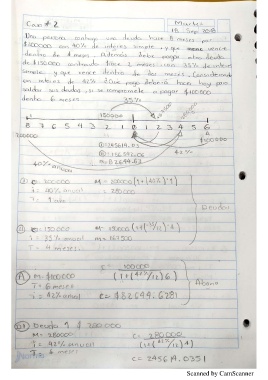 Caso # 2
Martes
18 Sep 2018
Una persona contrajo una deuda hace 8 meses por
$200000 con 40% de interes simple y que vence
dentro de 4 meses. Además debe pagar otra deuda
de $150000 contraida hace 2 meses con 35% de interes
simple y que vence dentro de dos meses. Considerando
un interes de 42% que pago deberá hacer hoy para
saldar sus deudas, si se compromete a pagar $100000
dentro 6 meses
35%
150000
8 7 6 5 4 3 2 1 0 1 2 3 4 5 6
200000
100000
① 245614.03
② 156542.06
③ 82644.63
42%
40% anual
① C= 200000 M= 200000(1+(.40)(1))
i= 40% anual = 280000
T= 1 año
Deudas
② C= 150000 M= 150000(1+(.35/12)4)
i= 35% anual M= 167500
T= 4 meses
Ⓐ M= $100000
T= 6 meses
i= 42% anual
C= 100000
(1+(.42/12)6)
C= $82644.6281
Abono
Deuda 1 $ 200000
M= 280000
i= 42% anual
C= 280000
(1+(.42/12)4)
C= 245614.0351
Scanned by CamScanner